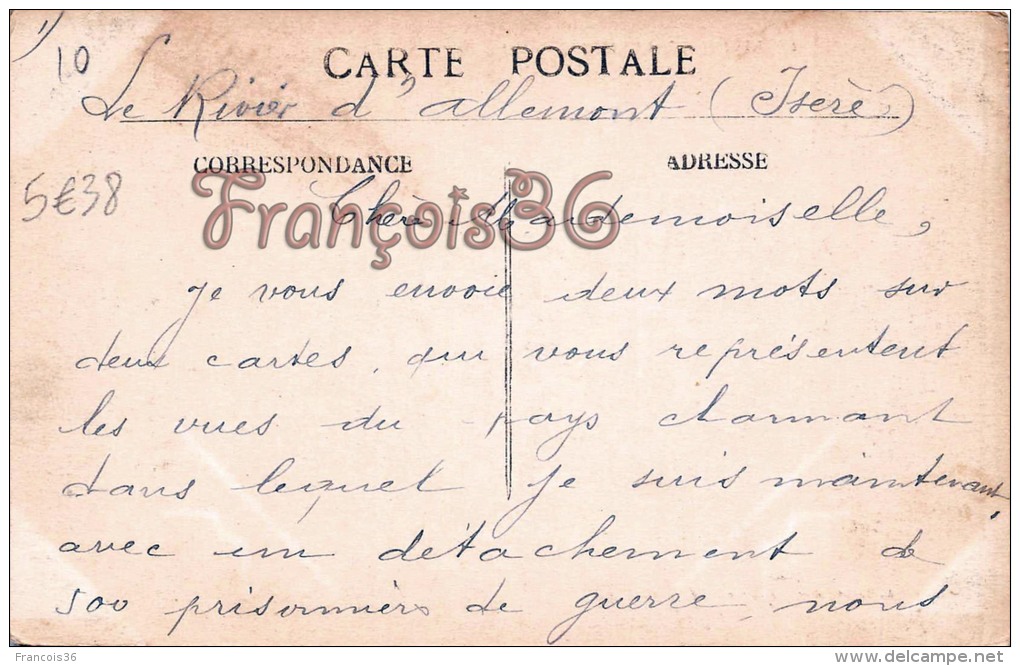 1)
10
CARTE POSTALE
Le Rivier d'allemont (Isère)
CORRESPONDANCE ADRESSE
5€38
François36
Chère Mademoiselle,
Je vous envoie deux mots sur
deux cartes, qui vous représentent
les vues du pays charmant
dans lequel je suis maintenant,
avec un détachement de
500 prisonniers de guerre, nous
Francois36
www.delcampe.net